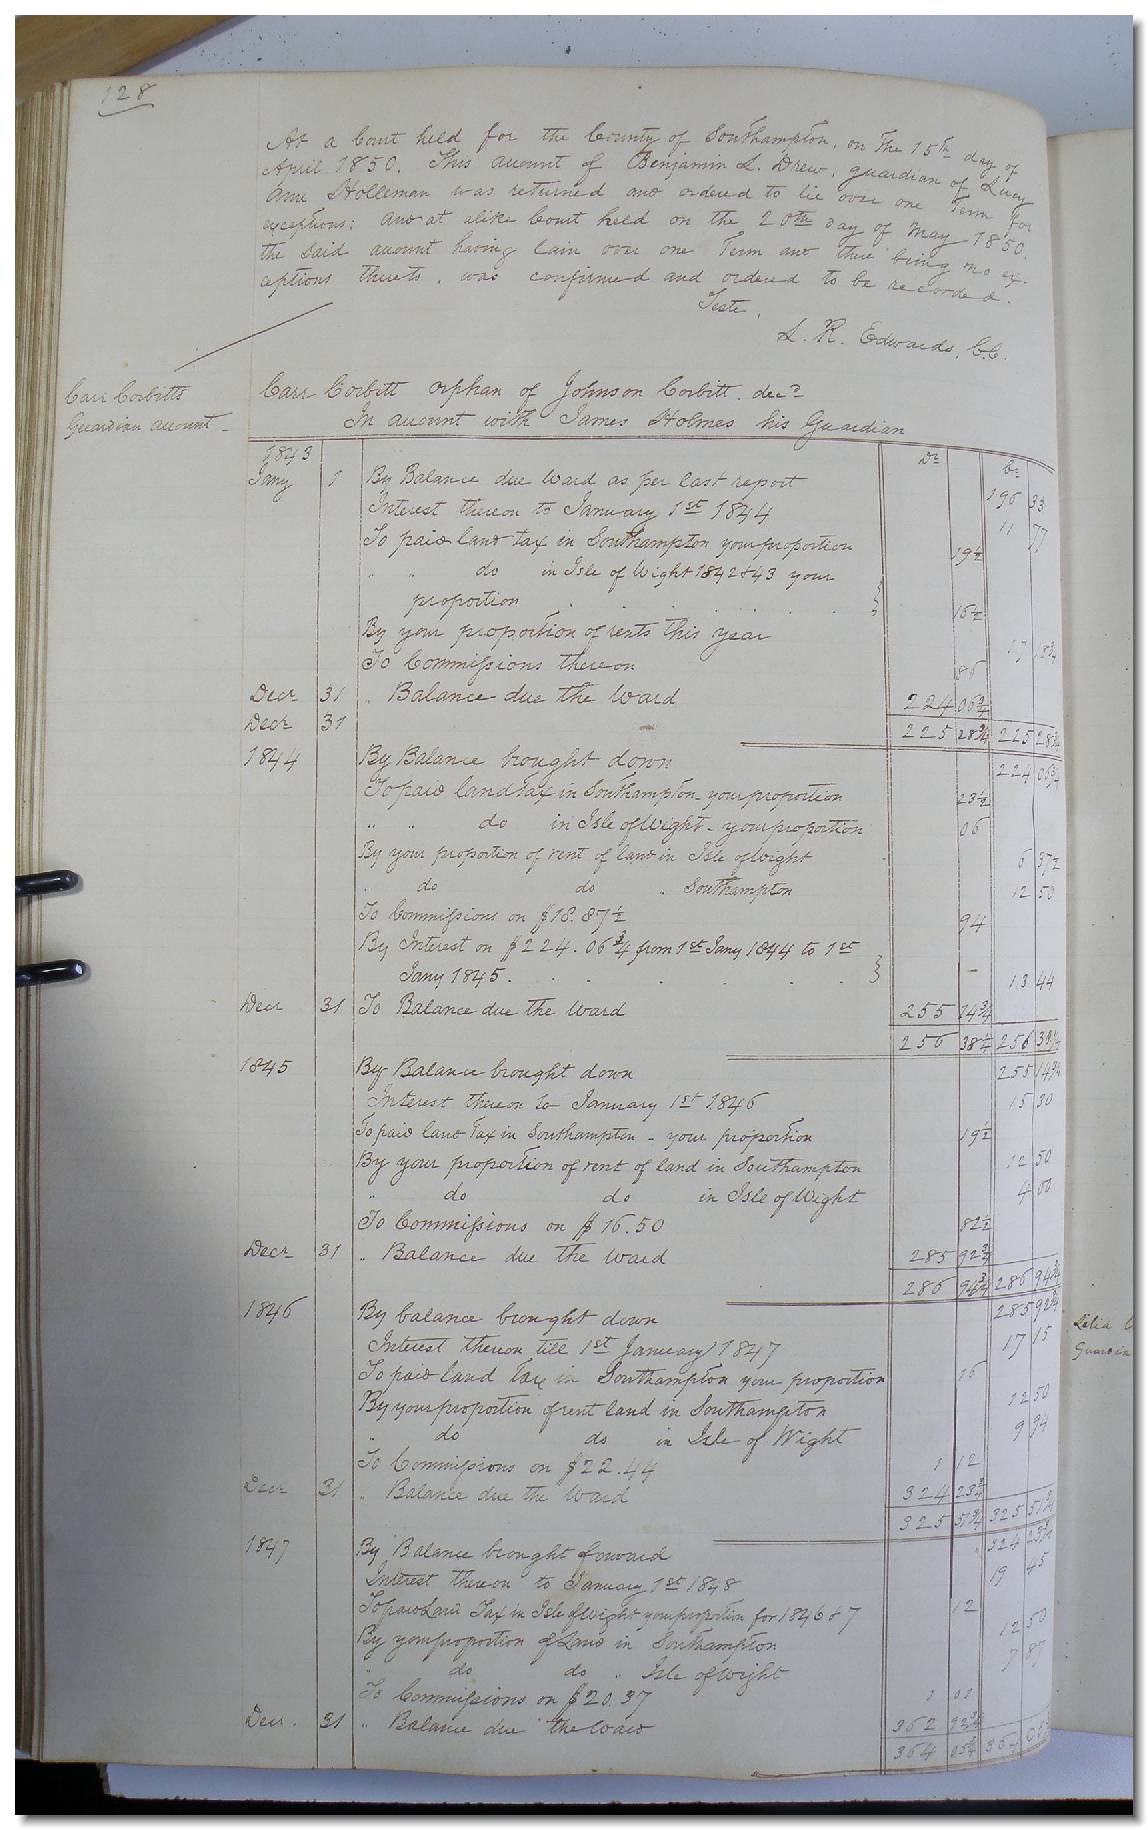 128
At a Court held for the County of Southampton, on the 15th day of
April 1850. This account of Benjamin L. Drew, guardian of Lucy
Ann Holleman was returned and ordered to lie over one Term for
exceptions: and at alike Court held on the 20th day of May 1850.
the said account having lain over one Term and there being no ex-
ceptions thereto, was confirmed and ordered to be recorded.
Teste,
L. R. Edwards, C.C.
Carr Corbitts
Guardian account
Carr Corbitt orphan of Johnson Corbitt. decd
In account with James Holmes his Guardian
1843 Dr Cr
Jany 1 By Balance due ward as per last report 196 33
Interest thereon to January 1st 1844 11 77
To paid land tax in Southampton your proportion 19½
" " do in Isle of Wight 1842 & 43 your
proportion 16½
By your proportion of rents this year 17 18¾
To Commissions thereon 86
Decr 31 " Balance due the Ward 224 06¾
Decr 31 225 28¾ 225 28¾
1844 By Balance brought down 224 06¾
To paid land Tax in Southampton your proportion 23½
" " do in Isle of Wight - your proportion 06
By your proportion of rent of land in Isle of Wight 6 37½
" do do " Southampton 12 50
To Commissions on $18.87½ 94
By Interest on $224.06¾ from 1st Jany 1844 to 1st
Jany 1845. 13 44
Decr 31 To Balance due the Ward 255 14¾
256 38¼ 256 38¼
1845 By Balance brought down 255 14¾
Interest thereon to January 1st 1846 15 30
To paid land Tax in Southampton - your proportion 19½
By your proportion of rent of land in Southampton 12 50
" do do in Isle of Wight 4 00
To Commissions on $16.50 82½
Decr 31 " Balance due the Ward 285 92¾
286 94¾ 286 94¾
1846 By balance brought down 285 92¾
Interest thereon till 1st January 1847 17 15
To paid land Tax in Southampton your proportion 16
By your proportion of rent land in Southampton 12 50
" do do in Isle of Wight 9 94
To Commissions on $22.44 1 12
Decr 31 " Balance due the Ward 324 23¾
325 51¾ 325 51¾
1847 By Balance brought forward 324 23¾
Interest thereon to January 1st 1848 19 45
To paid Land Tax in Isle of Wight your proportion for 1846 & 7 12
By your proportion of Land in Southampton 12 50
" do do " Isle of Wight 7 87
To Commissions on $20.37 1 01
Decr. 31 " Balance due the Ward 362 92¾
364 05¾ 364
Lelia
Guardian